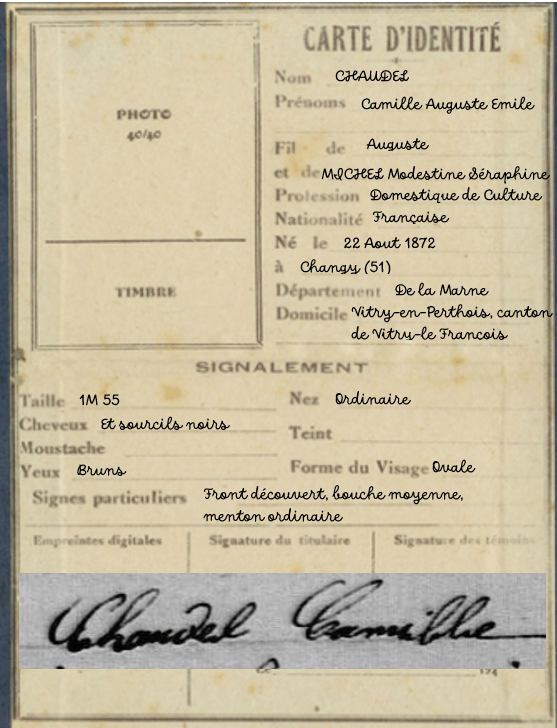 CARTE D'IDENTITÉ
Nom CHAUDEL
Prénoms Camille Auguste Emile
PHOTO
40/40
Fil de Auguste
et de MICHEL Modestine Séraphine
Profession Domestique de Culture
Nationalité Française
Né le 22 Aout 1872
à Changy (51)
TIMBRE
Département De la Marne
Domicile Vitry-en-Perthois, canton
de Vitry-le Francois
SIGNALEMENT
Taille 1M 55 Nez Ordinaire
Cheveux Et sourcils noirs
Teint
Moustache
Yeux Bruns Forme du Visage Ovale
Signes particuliers Front découvert, bouche moyenne,
menton ordinaire
Empreintes digitales Signature du titulaire Signature des témoins
Chaudel Camille